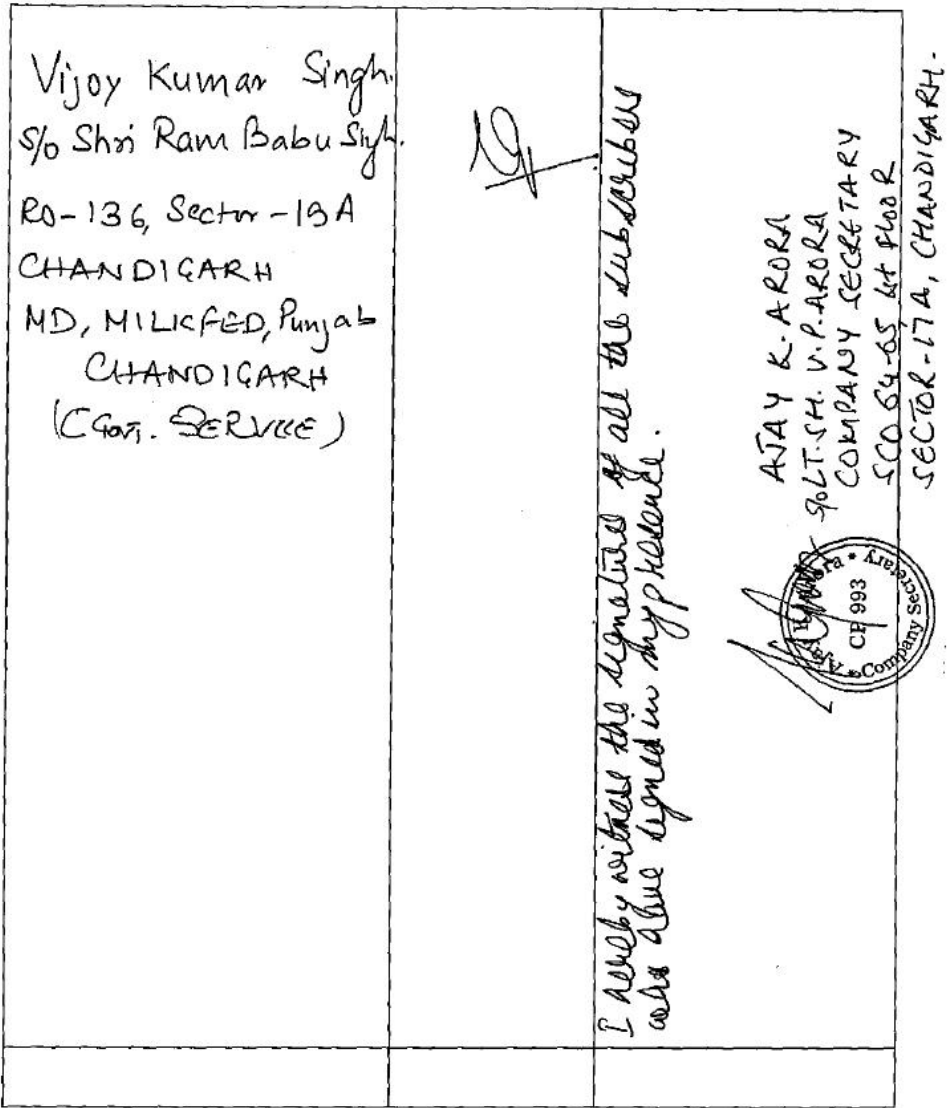 Vijoy Kumar Singh.
S/o Shri Ram Babu Singh.
RO-136, Sector-19A
CHANDIGARH
MD, MILKFED, Punjab
CHANDIGARH
(Govt. SERVICE)
I hereby witness the signature of all the subscribers
who have signed in my presence.
AJAY K. ARORA
S/o LT. SH. V.P. ARORA
COMPANY SECRETARY
SCO 64-65 1st FLOOR
SECTOR-17A, CHANDIGARH.
Ajay Arora * Company Secretary *
CP 993